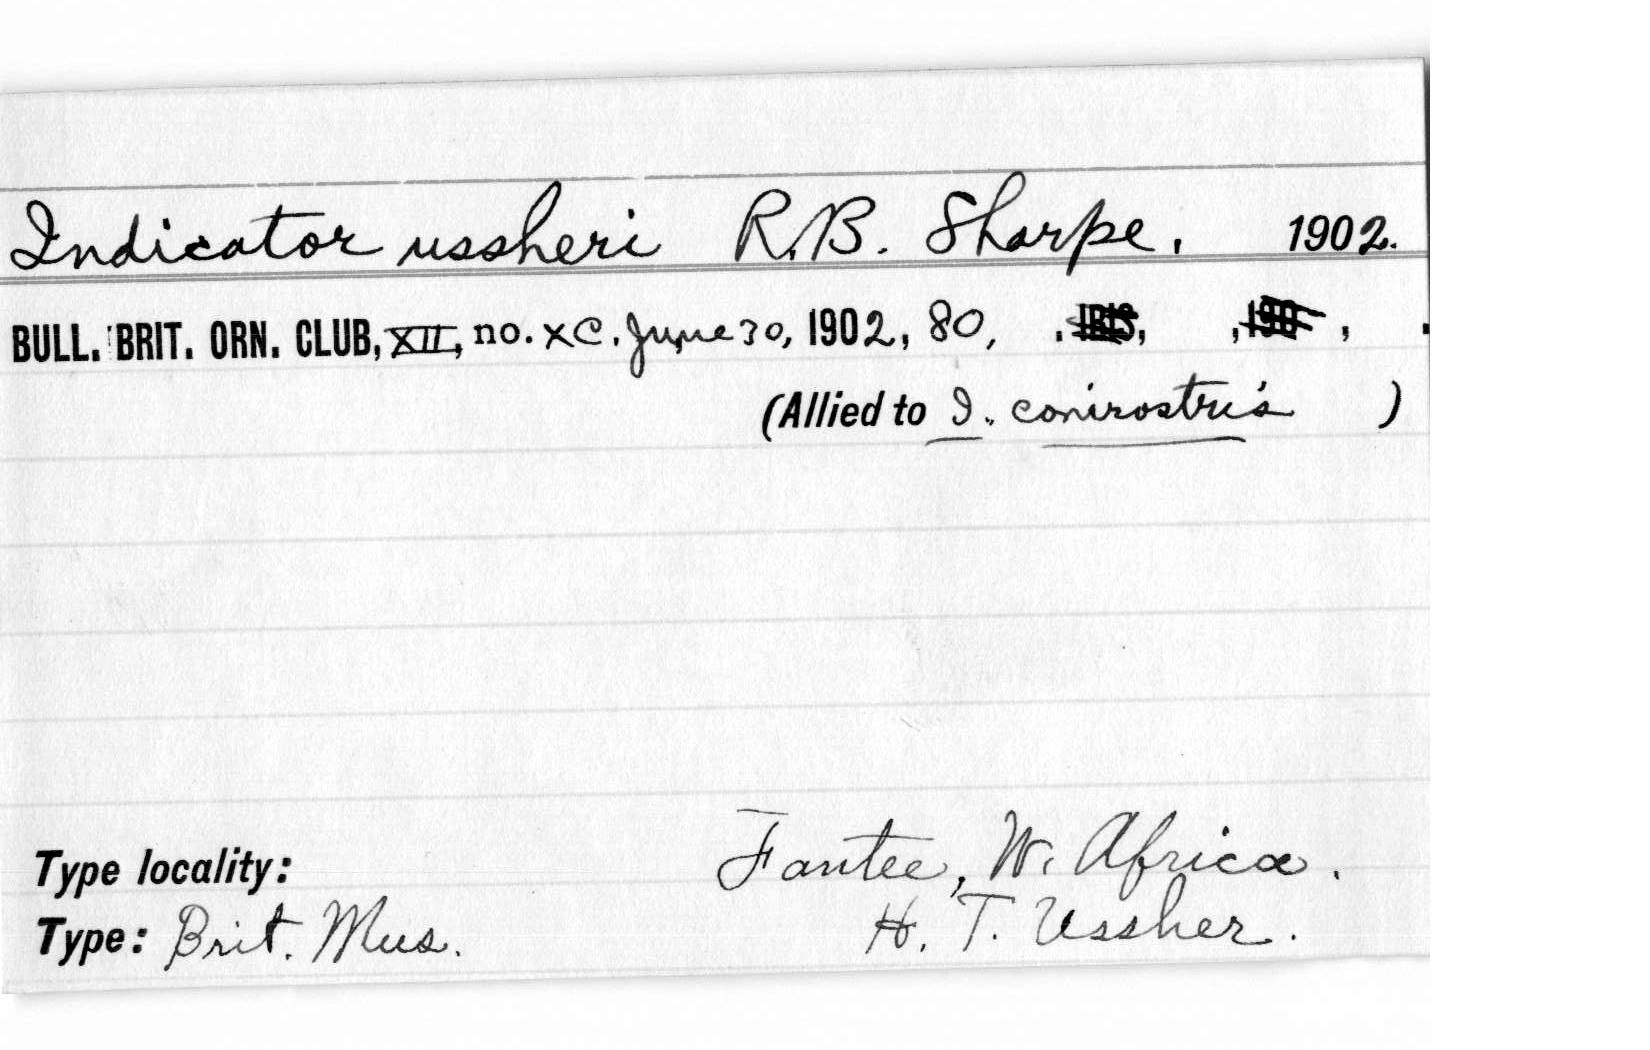 Indicator ussheri R.B. Sharpe. 1902.
BULL. BRIT. ORN. CLUB, XII, no. XC. June 30, 1902, 80, . IBIS, , 190 , .
(Allied to I. conirostris )
Type locality: Fantee, W. Africa.
Type: Brit. Mus. H. T. Ussher.